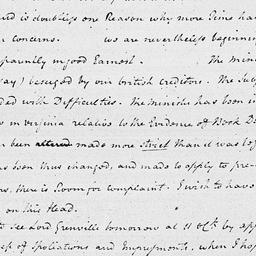 and is doubtless one Reason why more Crime have
r concerns. we are nevertheless beginnin
pparently in good Earnest. The Mini
way) besieged by our british creditors. The Subj
ded with Difficulties. The Minister has been in
s in Virginia relative to the Evidence of Book De
been altered made more strict than it was bef
as been thus changed, and made to apply to pre-
rs, there is Room for complaint. I wish to have
on this Head.
to see Lord Grenville tomorrow at 11 O'Ck by app
ess of Spoliations and Impressments, when I hop